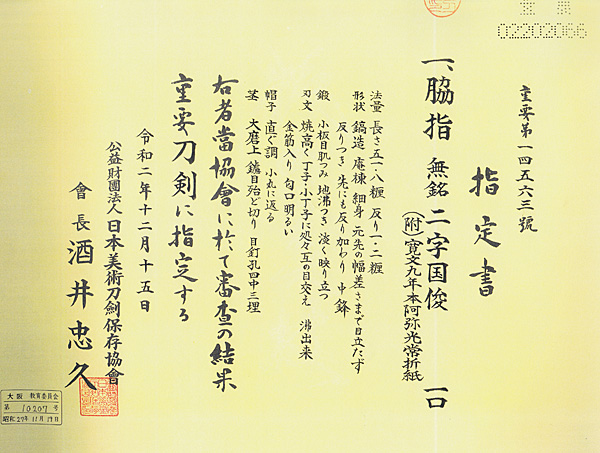 重要第一四五六三號
指定書
一、脇指 無銘 二字国俊 一口
(附)寛文九年本阿弥光常折紙
法量 長さ五一・八糎 反り一・二糎
形状 鎬造 庵棟 細身 元先の幅差さまで目立たず
反りつき 先にも反り加わり 中鋒
鍛 小板目肌つみ 地沸つき 淡く映り立つ
刃文 焼高く丁子・小丁子に処々互の目交え 沸出来
金筋入り 匂口明るい
帽子 直ぐ調 小丸に返る
茎 大磨上 鑢目殆ど切り 目釘孔四中三埋
右者當協會に於て審査の結果
重要刀剣に指定する
令和二年十二月十五日
公益財團法人日本美術刀劍保存協會
會長 酒井忠久
02202066
大阪 教育委員会
第 10207 号
昭和29年11月19日